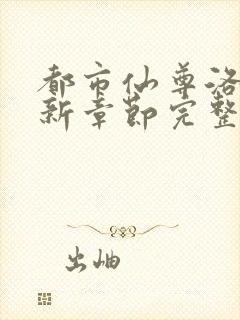 都市仙尊洛
新章节完整
出岫